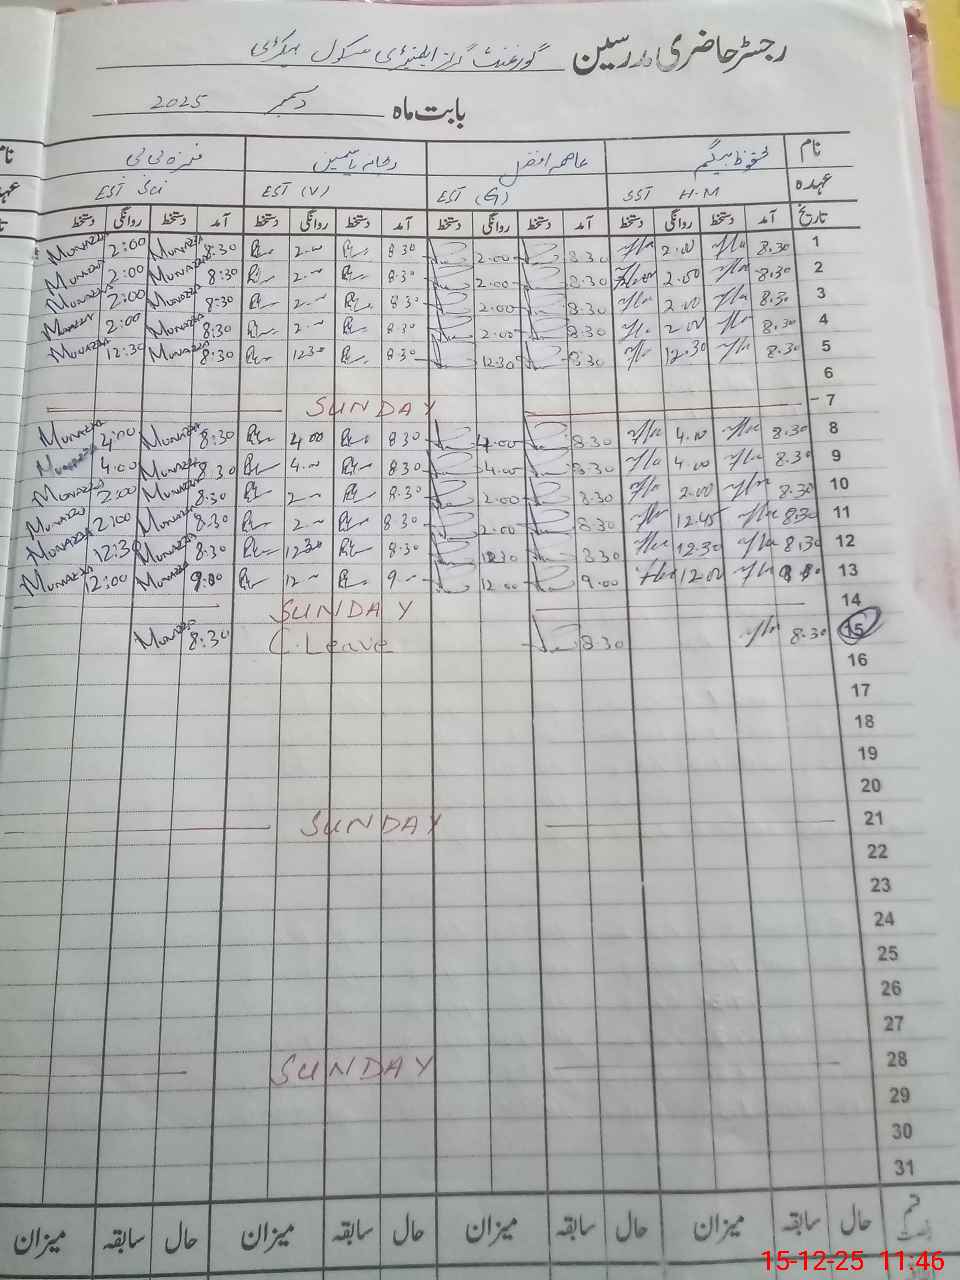 رجسٹر حاضری مدرسین گورنمنٹ گرلز ایلیمنٹری سکول
بابت ماہ دسمبر 2025
نام محفوظ بیگم عاصمہ افضل ریحانہ یاسمین منزہ بی بی
عہدہ SST H.M EST (G) EST (V) EST Sci
تاریخ آمد دستخط روانگی دستخط آمد دستخط روانگی دستخط آمد دستخط روانگی دستخط آمد دستخط روانگی دستخط
1 8.30 2.00 8.30 2.00 8.30 2.00 8:30 Munazza 2:00 Munazza
2 8.30 2.00 8.30 2.00 8.30 2.00 8:30 Munazza 2:00 Munazza
3 8.30 2.00 8.30 2.00 8.30 2.00 8:30 Munazza 2:00 Munazza
4 8.30 2.00 8.30 2.00 8.30 2.00 8:30 Munazza 2:00 Munazza
5 8.30 12.30 8.30 12.30 8.30 1230 8:30 Munazza 12:30 Munazza
6
7 SUNDAY
8 8.30 4.00 8.30 4.00 8.30 4.00 8:30 Munazza 4:00 Munazza
9 8.30 4.00 8.30 4.00 8.30 4.00 8.30 Munazza 4.00 Munazza
10 8.30 2.00 8.30 2.00 8.30 2.00 8.30 Munazza 2:00 Munazza
11 8.30 12.45 8.30 2.00 8.30 2.00 8.30 Munazza 2:00 Munazza
12 8.30 12.30 8.30 12.30 8.30 12.30 8.30 Munazza 12:30 Munazza
13 12.00 9.00 12.00 9.00 12.00 9.00 Munazza 12:00 Munazza
14 SUNDAY
15 8.30 8.30 C.Leave 8:30 Munazza
16
17
18
19
20
21 SUNDAY
22
23
24
25
26
27
28 SUNDAY
29
30
31
حال سابقہ میزان حال سابقہ میزان حال سابقہ میزان حال سابقہ میزان
15-12-25 11:46